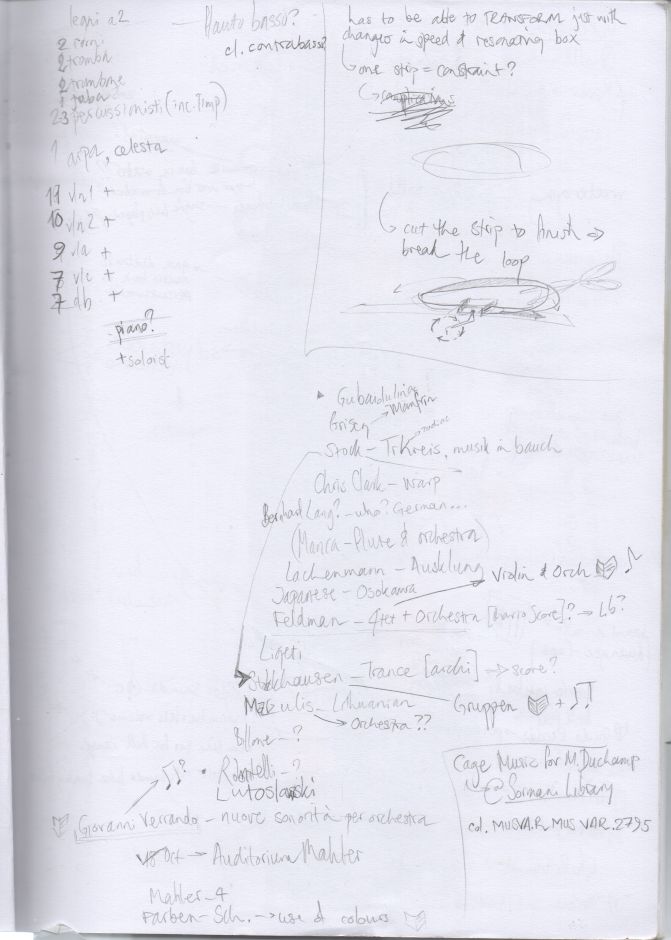 legni a2
Flauto basso?
cl. contrabasso?
2 corni
2 tromba
2 trombone
1 tuba
2-3 percussionisti (inc. Timp)
1 arpa, celesta
11 vln1 +
10 vln2 +
9 vla +
7 vlc +
7 db +
piano?
+ soloist
has to be able to TRANSFORM just with
changes in speed & resonating box
one strip = constraint?
cut the strip to finish ⇒
break the loop
Gubaidulina
Grisey
Stock - Trkreis, musik in bauch
Chris Clark - warp
Bernhard Lang? - who? German...
(Manca - flute & orchestra)
Lachenmann - Ausklung
Violin & Orch
Japanese - Osokawa
Feldman - 4tet + Orchestra [Score]? → Lb?
Ligeti
Stockhausen - Trance [archi] → score?
Gruppen
Lithuanian
Orchestra ??
Billone - ?
Robotelli - ?
Lutoslawski
Giovanni Verrando - nuove sonorità per orchestra
Oct → Auditorium Mahler
Mahler - 4
Farben - Sch. → use of colours
Cage Music for M. Duchamp
@ Sormani Library
col. MUS VAR. 2795